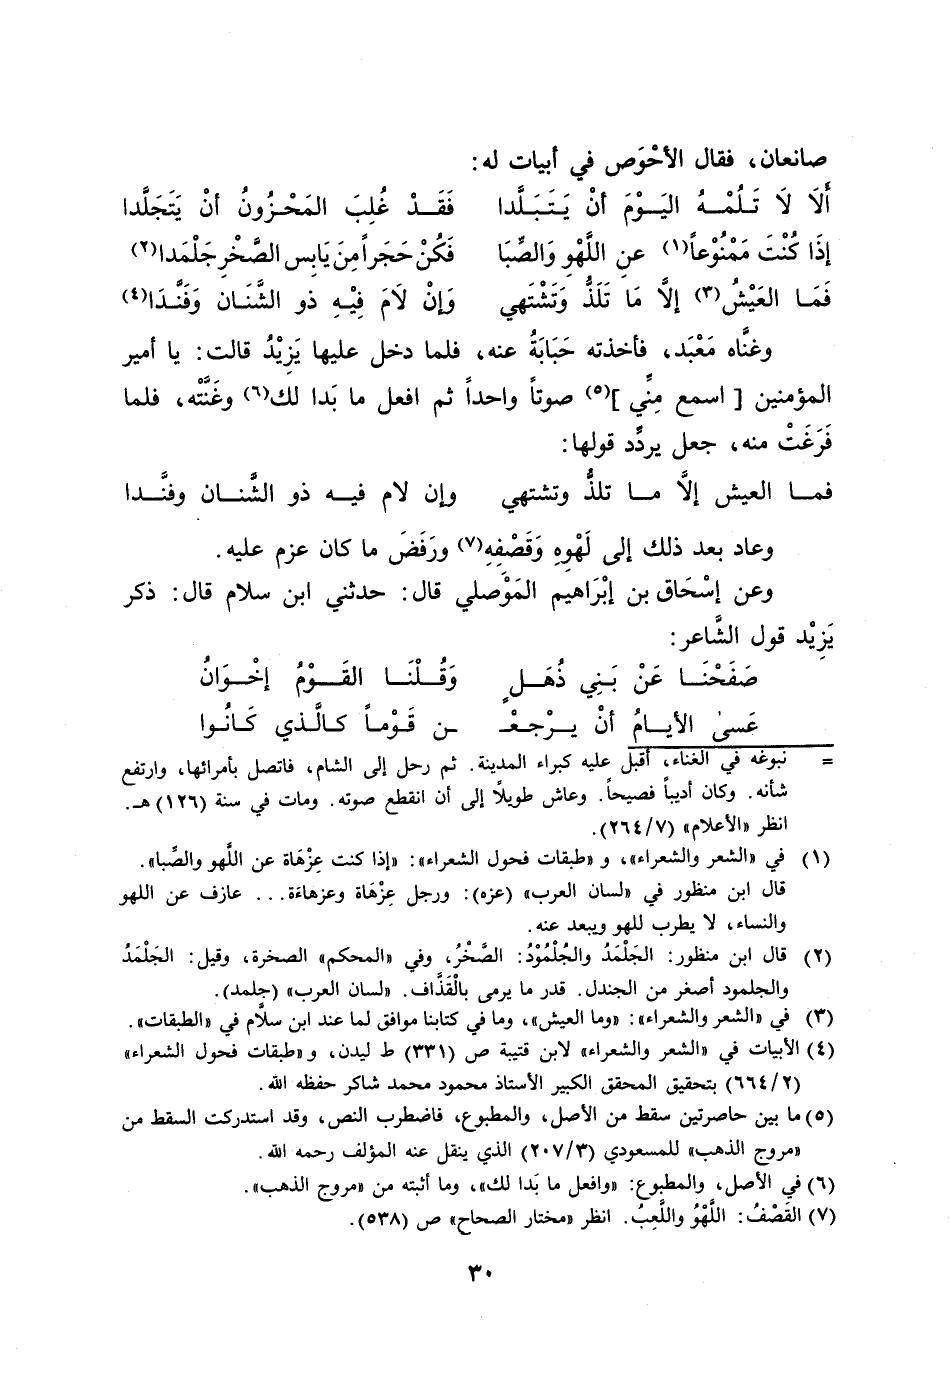 صانعان، فقال الأحْوَص في أبيات له:
أَلَا لَا تَـلُمْـهُ اليَـوْمَ أنْ يَـتَـبَـلَّدا فَقَـدْ غُلِبَ المَحْـزُونُ أنْ يَتَجَلَّدا
إذَا كُنْتَ مَمْنُوْعاً(١) عنِ اللَّهْوِ وَالصِّبَا فَكُنْ حَجَراً مِنَ يَابِسِ الصَّخْرِ جَلْمَدا(٢)
فَمَـا العَيْشُ(٣) إلَّا مَا تَلَذُّ وَتَشْتَهي وَإنْ لَامَ فِيْهِ ذو الشَّنَـان وَفَنَّـدَا(٤)
وغنَّاه مَعْبَد، فأخذته حَبَابَةُ عنه، فلما دخل عليها يَزِيْدُ قالت: يا أمير
المؤمنين [ اسمع مِنِّي ](٥) صوتاً واحداً ثم افعل ما بَدا لك(٦) وغَنَّتْه، فلما
فَرَغَتْ منه، جعل يردِّد قولها:
فمـا العيش إلَّا مـا تلذُّ وتشتهي وإن لام فيـه ذو الشَّنـان وفنَّـدا
وعاد بعد ذلك إلى لَهْوِهِ وَقَصْفِهِ(٧) ورَفَضَ ما كان عزم عليه.
وعن إسْحَاق بن إبْرَاهيم المَوْصلي قال: حدثني ابن سلام قال: ذكر
يَزِيْد قول الشَّاعر:
صَفَحْنَـا عَنْ بَنِي ذُهَـلٍ وَقُـلْنَـا القَـوْمُ إخْـوَانُ
عَسىٰ الأيـامُ أنْ يـرْجـعْـ ـن قَـوْماً كـالَّذي كَـانُوا
= نبوغه في الغناء، أقبل عليه كبراء المدينة. ثم رحل إلى الشام، فاتصل بأمرائها، وارتفع
شأنه. وكان أديباً فصيحاً. وعاش طويلاً إلى أن انقطع صوته. ومات في سنة (١٢٦) هـ.
انظر «الأعلام» (٧/ ٢٦٤).
(١) في «الشعر والشعراء»، و «طبقات فحول الشعراء»: «إذا كنت عِزْهَاة عن اللَّهو والصِّبا».
قال ابن منظور في «لسان العرب» (عزه): ورجل عِزْهَاة وعزهاءَة... عازف عن اللهو
والنساء، لا يطرب للهو ويبعد عنه.
(٢) قال ابن منظور: الجَلْمَدُ والجُلْمُوْدُ: الصَّخْرُ، وفي «المحكم» الصخرة، وقيل: الجَلْمَدُ
والجلمود أصغر من الجندل. قدر ما يرمى بالْقَذَّاف. «لسان العرب» (جلمد).
(٣) في «الشعر والشعراء»: «وما العيش»، وما في كتابنا موافق لما عند ابن سلَّام في «الطبقات».
(٤) الأبيات في «الشعر والشعراء» لابن قتيبة ص (٣٣١) ط ليدن، و «طبقات فحول الشعراء»
(٢/ ٦٦٤) بتحقيق المحقق الكبير الأستاذ محمود محمد شاكر حفظه الله.
(٥) ما بين حاصرتين سقط من الأصل، والمطبوع، فاضطرب النص، وقد استدركت السقط من
«مروج الذهب» للمسعودي (٣/ ٢٠٧) الذي ينقل عنه المؤلف رحمه الله.
(٦) في الأصل، والمطبوع: «وافعل ما بَدا لك»، وما أثبته من «مروج الذهب».
(٧) القَصْفُ: اللَّهْوُ واللَّعِبُ. انظر «مختار الصحاح» ص (٥٣٨).
٣٠